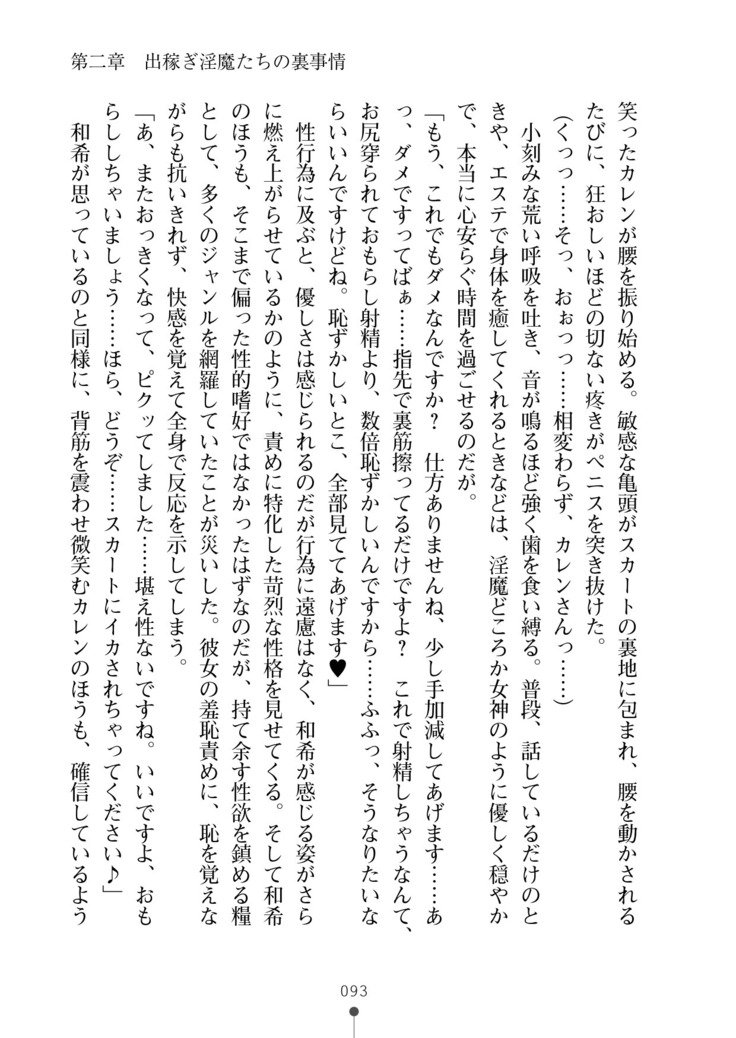 第二章　出稼ぎ淫魔たちの裏事情
笑ったカレンが腰を振り始める。敏感な亀頭がスカートの裏地に包まれ、腰を動かされる
たびに、狂おしいほどの切ない疼きがペニスを突き抜けた。
（くっっ……そっ、おぉっっ……相変わらず、カレンさんっ……）
　小刻みな荒い呼吸を吐き、音が鳴るほど強く歯を食い縛る。普段、話しているだけのと
きや、エステで身体を癒してくれるときなどは、淫魔どころか女神のように優しく穏やか
で、本当に心安らぐ時間を過ごせるのだが。
「もう、これでもダメなんですか？　仕方ありませんね、少し手加減してあげます……あ
っ、ダメですってばぁ……指先で裏筋擦ってるだけですよ？　これで射精しちゃうなんて、
お尻穿られておもらし射精より、数倍恥ずかしいんですから……ふふっ、そうなりたいな
らいいんですけどね。恥ずかしいとこ、全部見ててあげます♥」
　性行為に及ぶと、優しさは感じられるのだが行為に遠慮はなく、和希が感じる姿がさら
に燃え上がらせているかのように、責めに特化した苛烈な性格を見せてくる。そして和希
のほうも、そこまで偏った性的嗜好ではなかったはずなのだが、持て余す性欲を鎮める糧
として、多くのジャンルを網羅していたことが災いした。彼女の羞恥責めに、恥を覚えな
がらも抗いきれず、快感を覚えて全身で反応を示してしまう。
「あ、またおっきくなって、ピクッてしました……堪え性ないですね。いいですよ、おも
らししちゃいましょう……ほら、どうぞ……スカートにイカされちゃってください♪」
　和希が思っているのと同様に、背筋を震わせ微笑むカレンのほうも、確信しているよう
093